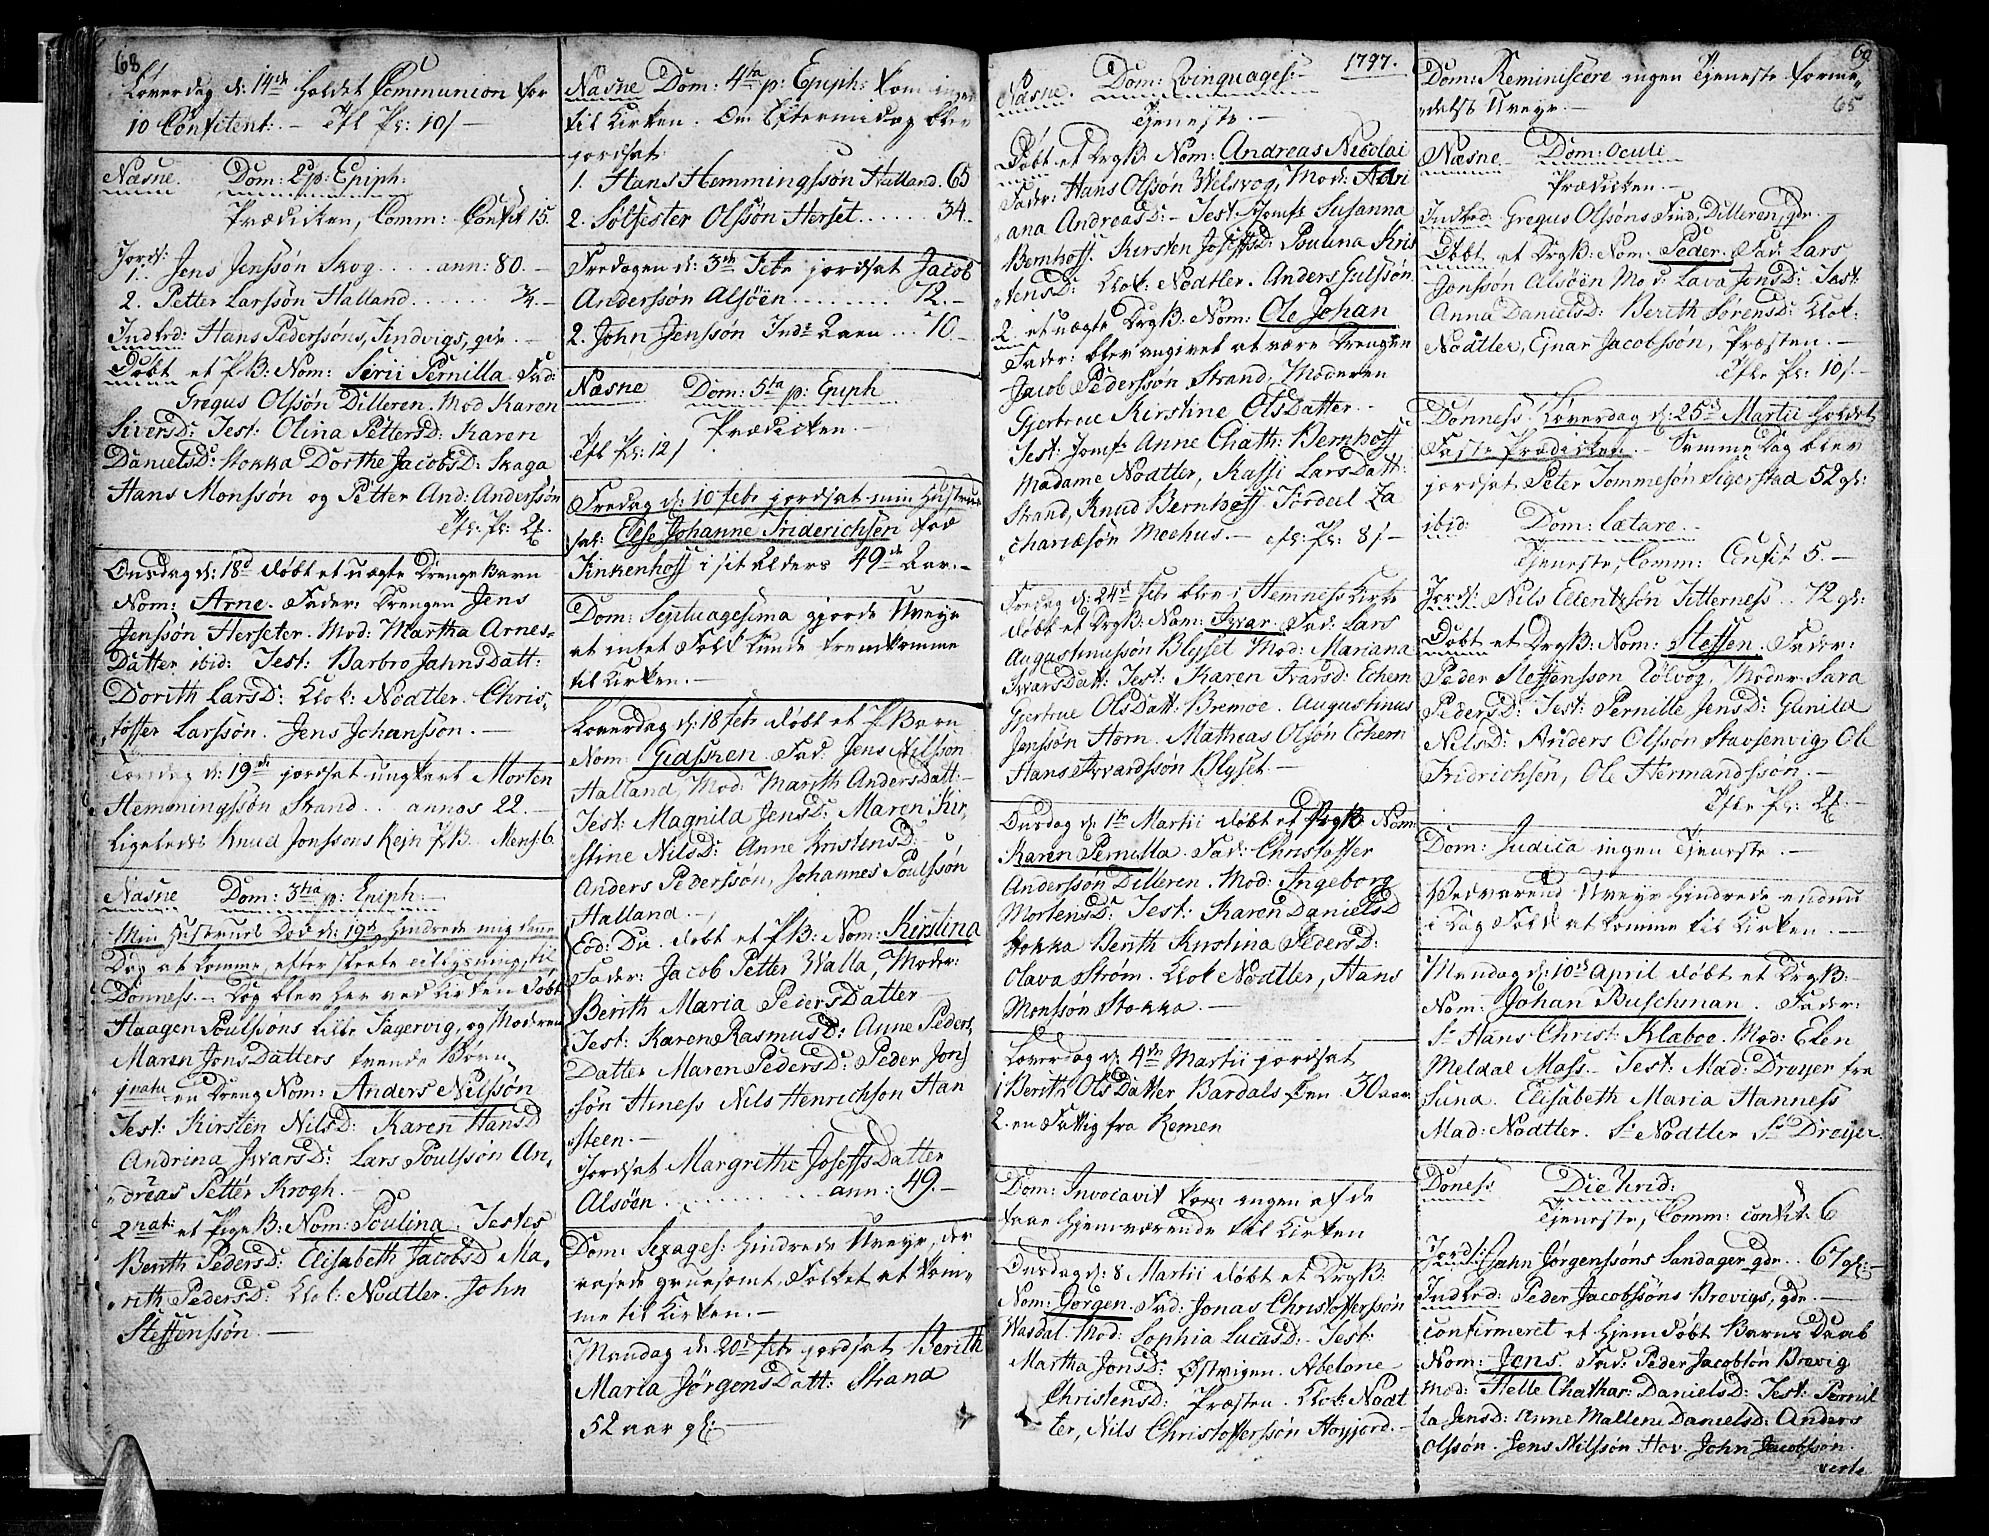 68
Löverdag d: 14de holdet Communion for
10 Confitent: – Tfl Pr: 10/–
Næsne Dom: 2 p: Epiph:
Prædicken, Comm: Confit 15.
Jords:
1. Jens Jenssön Skog .... ann: 80. –
2. Petter Larssön Halland ...... ¾. –
Indled: Hans Pederssöns, Findvigs, gdr. –
Döbt et P B: Nom: Sirii Pernilla. Fad:
Gregus Olssön Dilleren. Mod Karen
Siversd: Test: Olina Pettersd: Karen
Danielsd: Stokka Dorthe Jacobsd: Skaga
Hans Monssön og Petter And: Anderssön
Tfl: Pr: 2
Onsdag d: 18d döbt et uægte Drenge Barn
Nom: Arne. Fader: Drengen Jens
Jenssön Herseter. Mod: Martha Arnes-
Datter ibid: Test: Barbro Jahnsdatt:
Dorith Larsd: Klok: Nodtler. Chris-
toffer Larssön. Jens Johanssön. –
Torsdag d: 19de jordsat ungkarl Morten
Hemmingssön Strand .. annos 22. –
ligeledes Knud Jonssöns Rejn P B. Mens: 6.
Næsne Dom: 3tia p: Epiph: –
Min Hustrues Död d: 19de hindrede mig denne
Dag at komme, efter skeete tillysning, til
Dönness. – Dog blev her ved Kirken Döbt
Haagen Poulssöns lille Fagervig, og Moderen
Maren Jonsdatters tvende Börn
1 nata en Dreng Nom: Anders Nilssön
Test: Kirsten Nilsd: Karen Hansd
Andrina Ivarsd: Lars Poulssön An-
dreas Petter Krogh.
2 nat: et Pige B: Nom: Poulina. Testes
Berith Pedersd: Elisabeth Jacobsd Ma-
rith Pedersd: Klok: Nodtler. John
Steffenssön. –
Næsne Dom: 4ta p: Epiph: kom ingen
til Kirken. Om Eftermidag blev
jordsat
1. Hans Hemmingssön Halland. 65
2. Sölfester Olssön Herset ...... 34.
Fredagen d: 3de Febr jordsat Jacob
Anderssön Alsöen ......... 72. –
2. John Jenssön Inds: Qven ... 10. –
Næsne Dom: 5ta p: Epiph
Prædicken. –
Tfl Pr: 12/
Fredag d: 10 febr jordsat min Hustrue
sal: Else Johanne Friderichsen föd
Finkenhoff i sit Alders 49de Aar. –
Dom: Septuagesima gjorde Uveyr
at intet Folk kunde fremkomme
til Kirken. –
Löverdag d: 18 febr döbt et P Barn
Nom: Gidsken. Fad: Jens Nilsson
Halland, Mod: Marith Andersdatt: –
Test: Magnild Jensd: Maren Kir-
stine Nilsd: Anne Kristensd: –
Anders Pederssön, Johannes Poulssön
Halland. –
Eod: Die döbt et P B: Nom: Kirstina
Fader: Jacob Petter Walla, Moder:
Berith Maria Pedersdatter –
Test: Karen Rasmusd: Anne Peders-
Datter Maren Pedersd: Peder Jons
sön Hness Nils Henrichsön Han
steen. –
Jordsat Margrethe Joseffsdatter
Alsöen. ........ ann: 49. –
Dom: Sexages: hindrede Uveyr, der
rasede gruesomt Folket at kom-
me til Kirken. –
Mandag d: 20de febr jordsat Berith
Maria Jörgensdatt: Strand
52 aar gl: –
Næsne Dom: Qvinquages: – 1797.
Tjeneste. –
Döbt et Drg B: Nom: Andreas Nicolai
Fader: Hans Olssön Welsvog, Mod: Adri
ana Andreasd: – Test: Jomfr Susanna
Bernhoff. Kirsten Joseffsd: Poulina Kris
tensd: Klok: Nodtler. Anders Gulssön
2. et uægte Drg B: Nom: Ole Johan
Fader: blev angivet at være Drengen
Jacob Pederssön Strand. Moderen
Gjertrue Kirstine Olsdatter. –
Test: Jomfr Anne Chath: Bernhoff
Madame Nodtler, Kassi Larsdatt:
Strand, Knud Bernhoff. Tördel Za
chariæsön Moehus. – Tfl: Pr: 8/ –
Fredag d: 24de febr blev i Hemness Kirke
döbt et Drg B: Nom: Ivar. Fad: Lars
Augustinussön Blyset Mod: Mariana
Ivarsdatt: Test: Karen Ivarsd: Echern
Gjertrue Olsdatt: Bremoe. Augustinus
Jenssön Horn. Mathias Olsön Echern
Hans Ivardssön Blyset. –
Onsdag d: 1te Martii döbt et Pge B Nom:
Karen Pernilla. Fad: Christoffer
Anderssön Dilleren. Mod: Ingeborg
Mortensd: Test: Karen Danielsd
Stokka Berith Kirstina Pedersd:
Olava Ström. Klok Nodtler, Hans
Monssön Stokka. –
Löverdag d: 4de Martii jordsat
1 Berith Olsdatter Bardalssöen. 30 aar.
2. en Fattig fra Remen
Dom: Invocavit kom ingen af de
faae hjemværende til Kirken
Onsdag d: 8 Martii döbt et Drg B:
Nom: Jörgen. Fad: Jonas Christofferssön
Wasdal. Mod: Sophia Lucasd: – Test:
Martha Jonsd: Östvigen. Abelone
Christensd: Præsten. Klok: Nodt
ler, Nils Christofferssön Høyjord. –
69
65
Dom: Reminiscere ingen Tjeneste forme-
delst Uveyr. –
Næsne Dom: Oculi
Prædicken. –
Indled: Gregus Olssöns Fru, Dilleren, gdr. –
Döbt et Drg B: Nom: Peder. Fad: Lars
Jonssön Alsöen Mod: Lava Jonsd: Test:
Anna Danielsd: Berith Sörensd: Klok:
Nodtler, Ejnar Jacobssön, Præsten. –
Tfl: Pr: 10/ –
Dönness, Löverdag d: 25de Martii holdet
Faste Prædicken. – Samme Dag blev
jordsat Peter Tommesön Sigerstad 52 gl:
ibid: Dom: Lætare. –
Tjeneste, Comm: Confit 5. –
Jords: Nils Ellentzön Titterness 72 gl:
Döbt et Drg B: Nom: Steffen. Fader:
Peder Steffenssön Tölvog, Moder: Sara
Pedersd: Test: Pernille Jensd: Gunild
Nilsd: Anders Olssön Stavsenvig, Ole
Fridrichsen, Ole Hermandssön. –
Tfl: Pr: 2
Dom: Judica ingen Tjeneste. –
Vedvarend Uveyr hindrede endnu
i Dag Folk at komme til Kirken. –
Mandag d: 10de April döbt et Drg B:
Nom: Johan Buschman. Fader:
Sr Hans Christ: Klaboe. Mod: Elen
Meldal Moss. – Test: Mad: Dreyer fra
Suna. Elisabeth Maria Hanness
Mad: Nodtler. Sr Nodtler Sr Dreyer
Döness Die Virid:
Tjeneste, Comm: confit: 6
Jords: Jahn Jörgenssöns Sandager gdr .. 67 gl: –
Indled: Peder Jacobssöns Brevigs, gdr. –
confirmeret et hjemdöbt Barns Daab
Nom: Jens. Fad: Peder Jacobsön Brevig
Mod: Helle Chathar: Danielsd: Test: Pernil
la Jensd: Anne Mallene Danielsd: Anders
Olssön. Jens Nilssön Hov. John Jacobssön.
verte